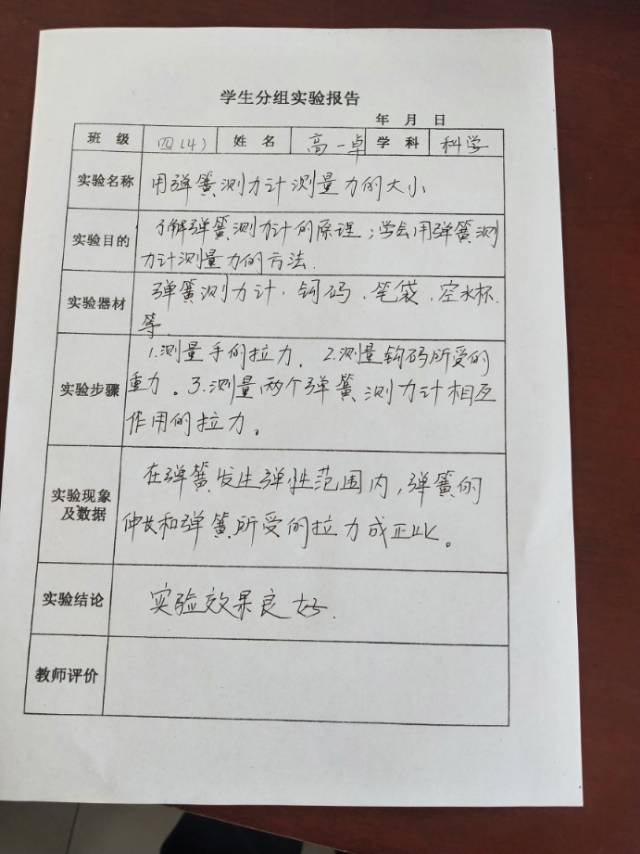 学生分组实验报告
年 月 日
班 级 四(4) 姓 名 高一卓 学 科 科学
实验名称 用弹簧测力计测量力的大小
实验目的 了解弹簧测力计的原理；学会用弹簧测
力计测量力的方法.
实验器材 弹簧测力计．钩码．笔袋．空水杯.
等.
实验步骤 1.测量手的拉力．2.测量钩码所受的
重力。3.测量两个弹簧测力计相互
作用的拉力。
实验现象及数据 在弹簧发生弹性范围内，弹簧的
伸长和弹簧所受的拉力成正比。
实验结论 实验效果良好.
教师评价